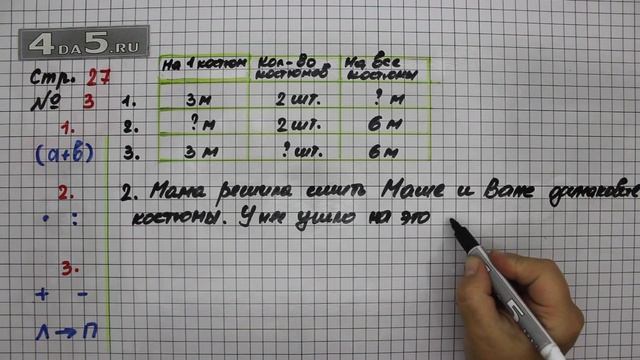 4DA5.RU
Стр. 27
№ 3
1.
(а+в)
2.
· :
3.
+ -
Л → П
на 1 костюм Кол-во костюмов На все костюмы
1. 3 м 2 шт. ? м
2. ? м 2 шт. 6 м
3. 3 м ? шт. 6 м
2. Мама решила сшить Маше и Ване одинаковые
костюмы. У нее ушло на это